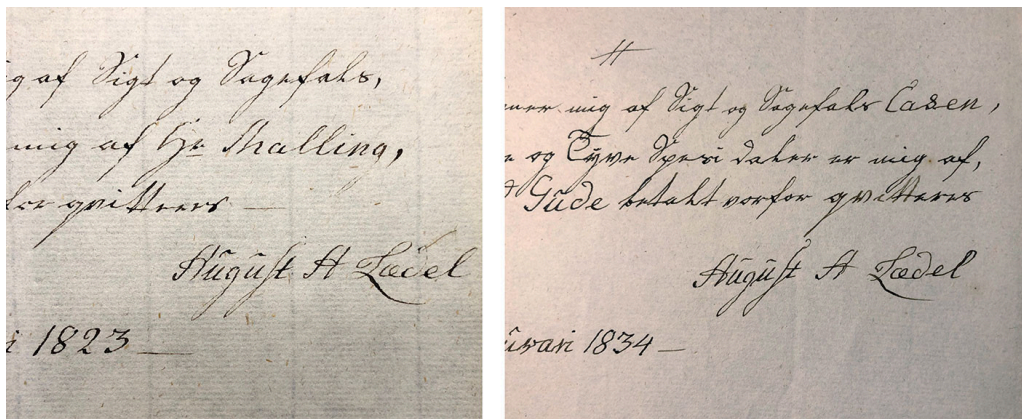 ig af Sigt og Sagefals,
mig af Hr Malling,
for qvitteres —
August A Lædel
i 1823 —
#
ner mig af Sigt og Sagefals Casen,
e og Tyve Speci daler er mig af,
Gude betalt vorfor qvitteres
August A Lædel
uari 1834 —